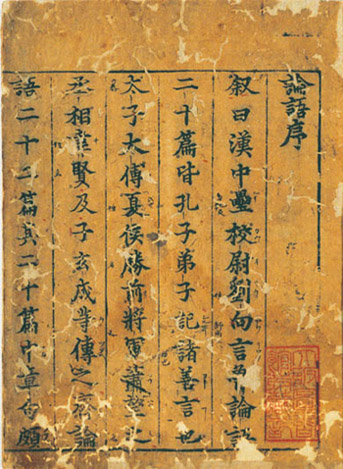 論語序
叙曰漢中壘校尉劉向言魯論語
二十篇皆孔子弟子記諸善言也
太子大傅夏侯勝前將軍蕭望之
丞相韋賢及子玄成等傳之齊論
語二十二篇其二十篇中章句頗